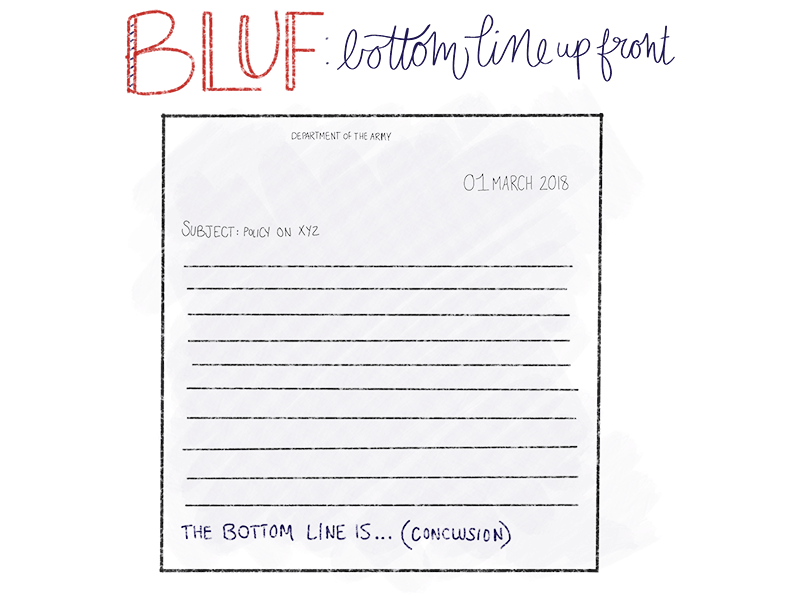 BLUF: bottom line up front
DEPARTMENT OF THE ARMY
01 MARCH 2018
SUBJECT: POLICY ON XYZ
THE BOTTOM LINE IS... (CONCLUSION)